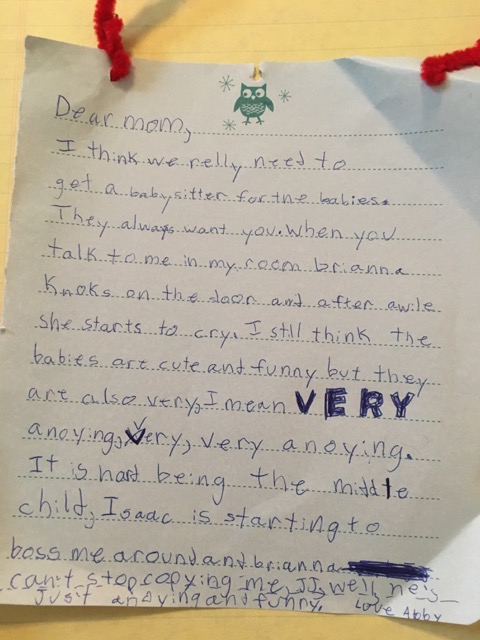 Dear mom,
I think we relly need to
get a babysitter for the babies.
They always want you. When you
talk to me in my room brianna
knoks on the door and after awile
she starts to cry. I still think the
babies are cute and funny but they
are also very, I mean VERY
anoying, very, very anoying.
It is hard being the middle
child, Isaac is starting to
boss me around and brianna
can't stop copying me, JJ, well he's
just anoying and funny. Love Abby